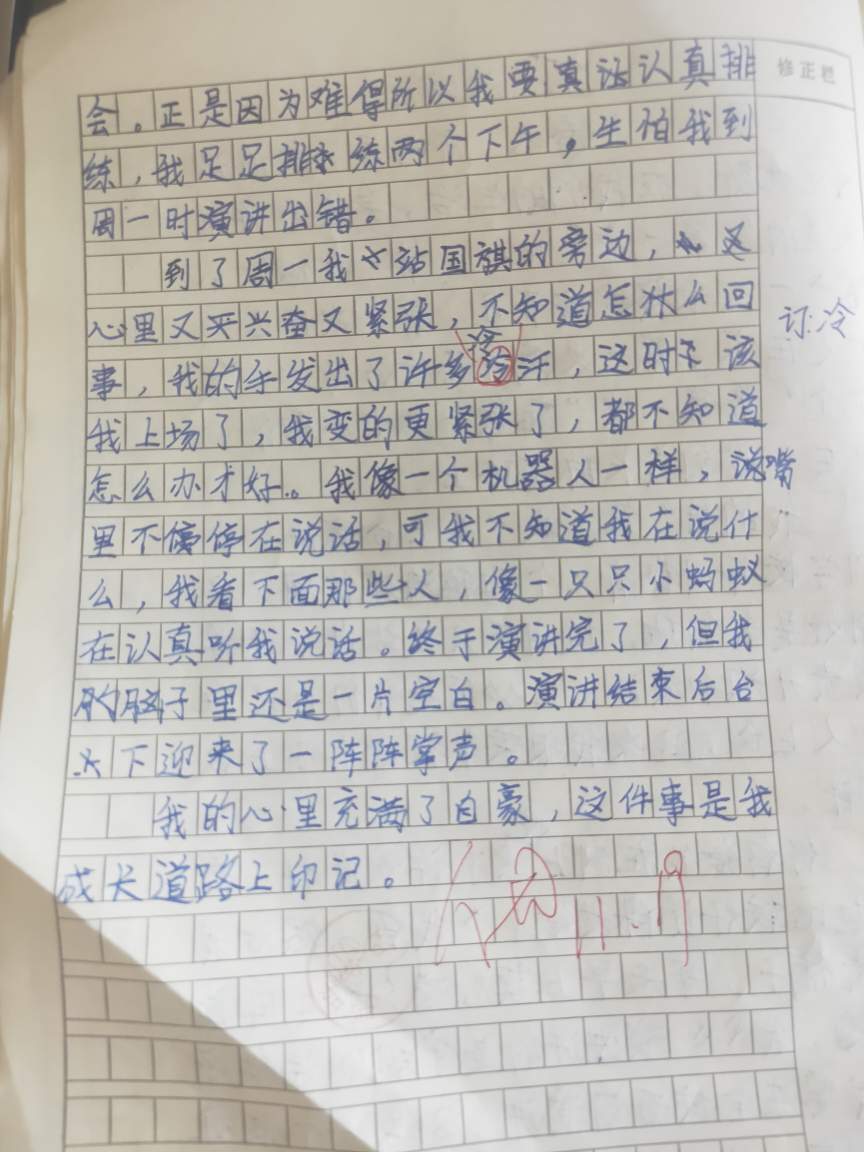 修正栏
会。正是因为难得所以我要真认真排
练，我足足排练两个下午，生怕我到
周一时演讲出错。
到了周一我站国旗的旁边，又
心里又兴奋又紧张，不知道怎么回
订:冷
冷
事，我的手发出了许多冷汗，这时该
我上场了，我变的更紧张了，都不知道
怎么办才好。我像一个机器人一样，嘴
里不停停在说话，可我不知道我在说什
么，我看下面那些人，像一只只小蚂蚁
在认真听我说话。终于演讲完了，但我
的脑子里还是一片空白。演讲结束后台
下迎来了一阵阵掌声。
我的心里充满了自豪，这件事是我
成长道路上印记。
11.9